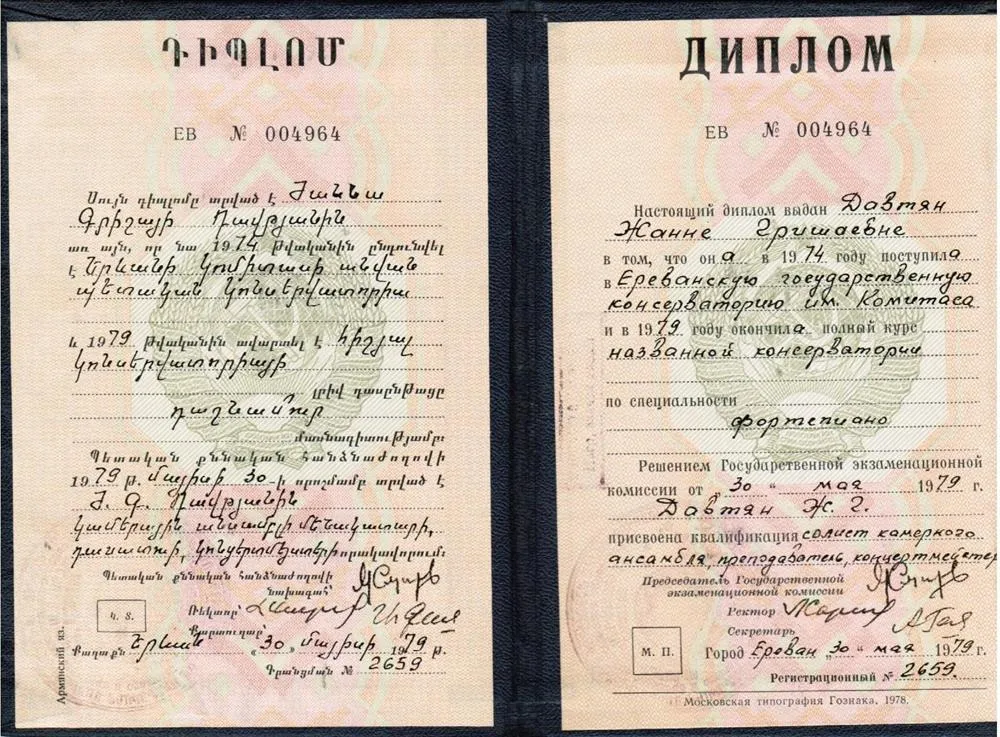 ԴԻՊԼՈՄ
ЕВ № 004964
Սույն դիպլոմը տրված է Ժաննա
Գրիշայի Դավթյանին
առ այն, որ նա 1974 թվականին ընդունվել
է Երևանի Կոմիտասի անվան
պետական կոնսերվատորիա
և 1979 թվականին ավարտել է հիշյալ
կոնսերվատորիայի
լրիվ դասընթացը
դաշնամուր
մասնագիտությամբ:
Պետական քննական հանձնաժողովի
1979 թ. մայիսի 30-ի որոշմամբ տրված է
Ժ. Գ. Դավթյանին
կամերային անսամբլի մենակատարի,
դասատուի, կոնցերտմեյստերի որակավորում:
Պետական քննական հանձնաժողովի
նախագահ՝
Ռեկտոր՝
Կ. Տ.
Քարտուղար՝
Քաղաքն Երևան „30„ մայիսի 1979 թ.
Գրանցման № 2659
Армянский яз.
ДИПЛОМ
ЕВ № 004964
Настоящий диплом выдан Давтян
Жанне Гришаевне
в том, что она в 1974 году поступила
в Ереванскую государственную
консерваторию им. Комитаса
и в 1979 году окончила полный курс
названной консерватории
по специальности
фортепиано
Решением Государственной экзаменационной
комиссии от „30“ мая 1979 г.
Давтян Ж. Г.
присвоена квалификация солист камерного
ансамбля, преподаватель, концертмейстер
Председатель Государственной
экзаменационной комиссии
Ректор
Секретарь
М. П.
Город Ереван „30“ мая 1979 г.
Регистрационный № 2659.
Московская типография Гознака. 1978.